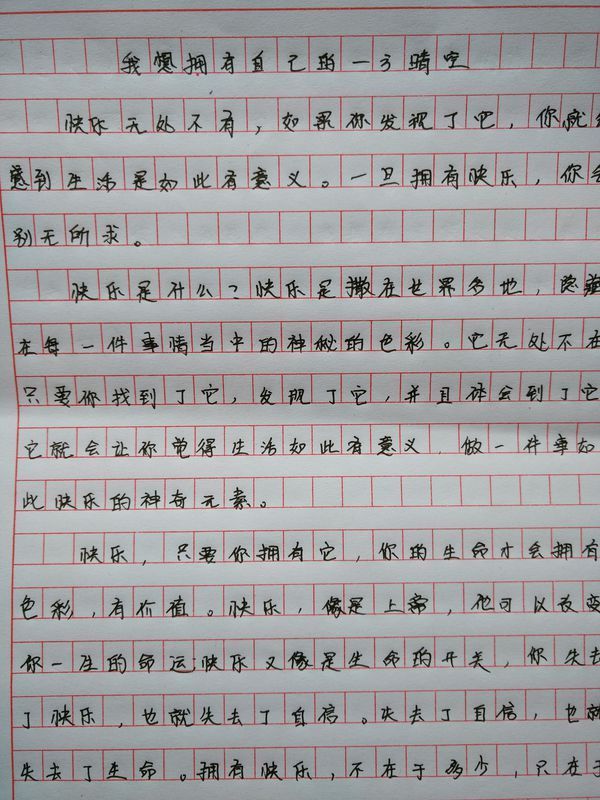 我想拥有自己的一方晴空
快乐无处不有，如果你发现了它，你就
意到生活是如此有意义。一旦拥有快乐，你会
别无所求。
快乐是什么？快乐是撒在世界多地，隐藏
在每一件事情当中的神秘的色彩。它无处不在
只要你找到了它，发现了它，并且体会到了它
它就会让你觉得生活如此有意义，做一件事如
此快乐的神奇元素。
快乐，只要你拥有它，你的生命才会拥有
色彩，有价值。快乐，像是上帝，他可以改变
你一生的命运快乐又像是生命的开关，你失去
了快乐，也就失去了自信。失去了自信，也就
失去了生命。拥有快乐，不在于多少，只在于